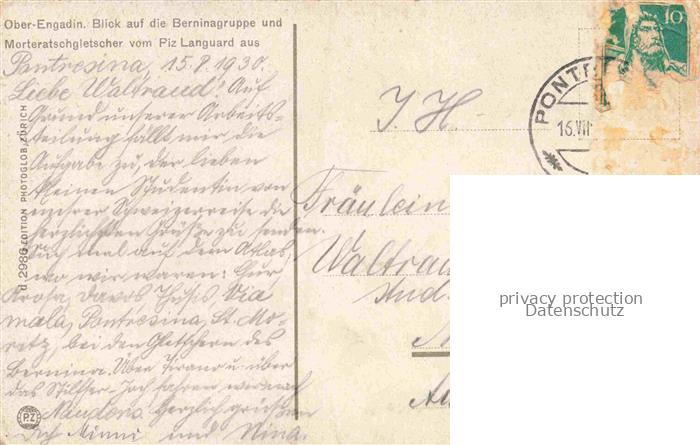 Ober-Engadin. Blick auf die Berninagruppe und
Morteratschgletscher vom Piz Languard aus
Pontresina, 15.8.1930.
Liebe Waltraud! Auf
Grund unserer Arbeits-
teilung fällt mir die
Aufgabe zu, der lieben
kleinen Studentin von
unserer Schweizerreise die
herzlichsten Grüße zu senden.
Such mal auf dem Atlas,
wo wir waren! Chur,
Arosa, Davos, Thusis Via
mala, Pontresina, St. Mo-
ritz, bei den Gletschern des
Bernina. Über Tirano u. über
das Stilfser-Joch fahren wir nach
Nauders. Herzlich grüssen
Dich Minni und Nina.
d 2986 EDITION PHOTOGLOB, ZÜRICH
PZ
I. H.
Fräulein
Waltrau
stud.
10
PONT
16.VII
privacy protection
Datenschutz